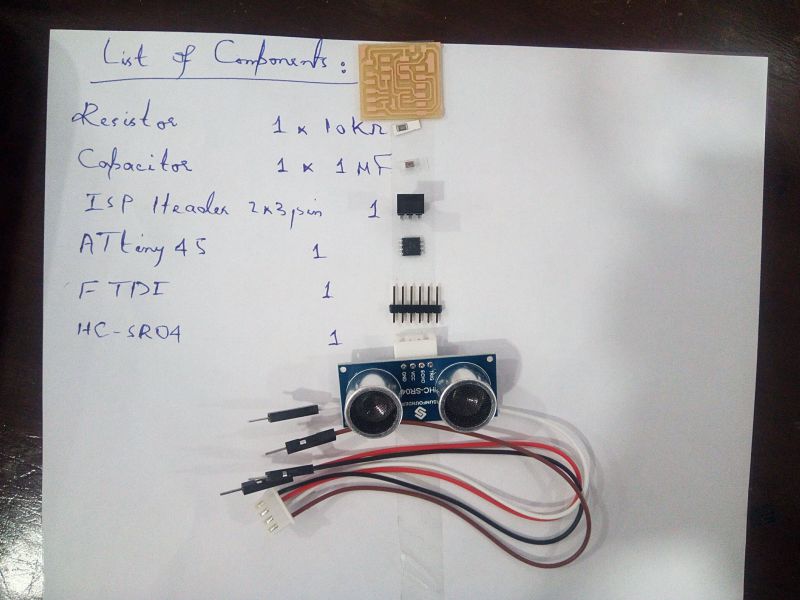 List of Components:
Resistor 1 x 10KΩ
Capacitor 1 x 1 µF
ISP Header 2x3pin 1
ATtiny 45 1
FTDI 1
HC-SR04 1
TRIG
ECHO
VCC
GND
HC-SR04
SUNFOUNDER